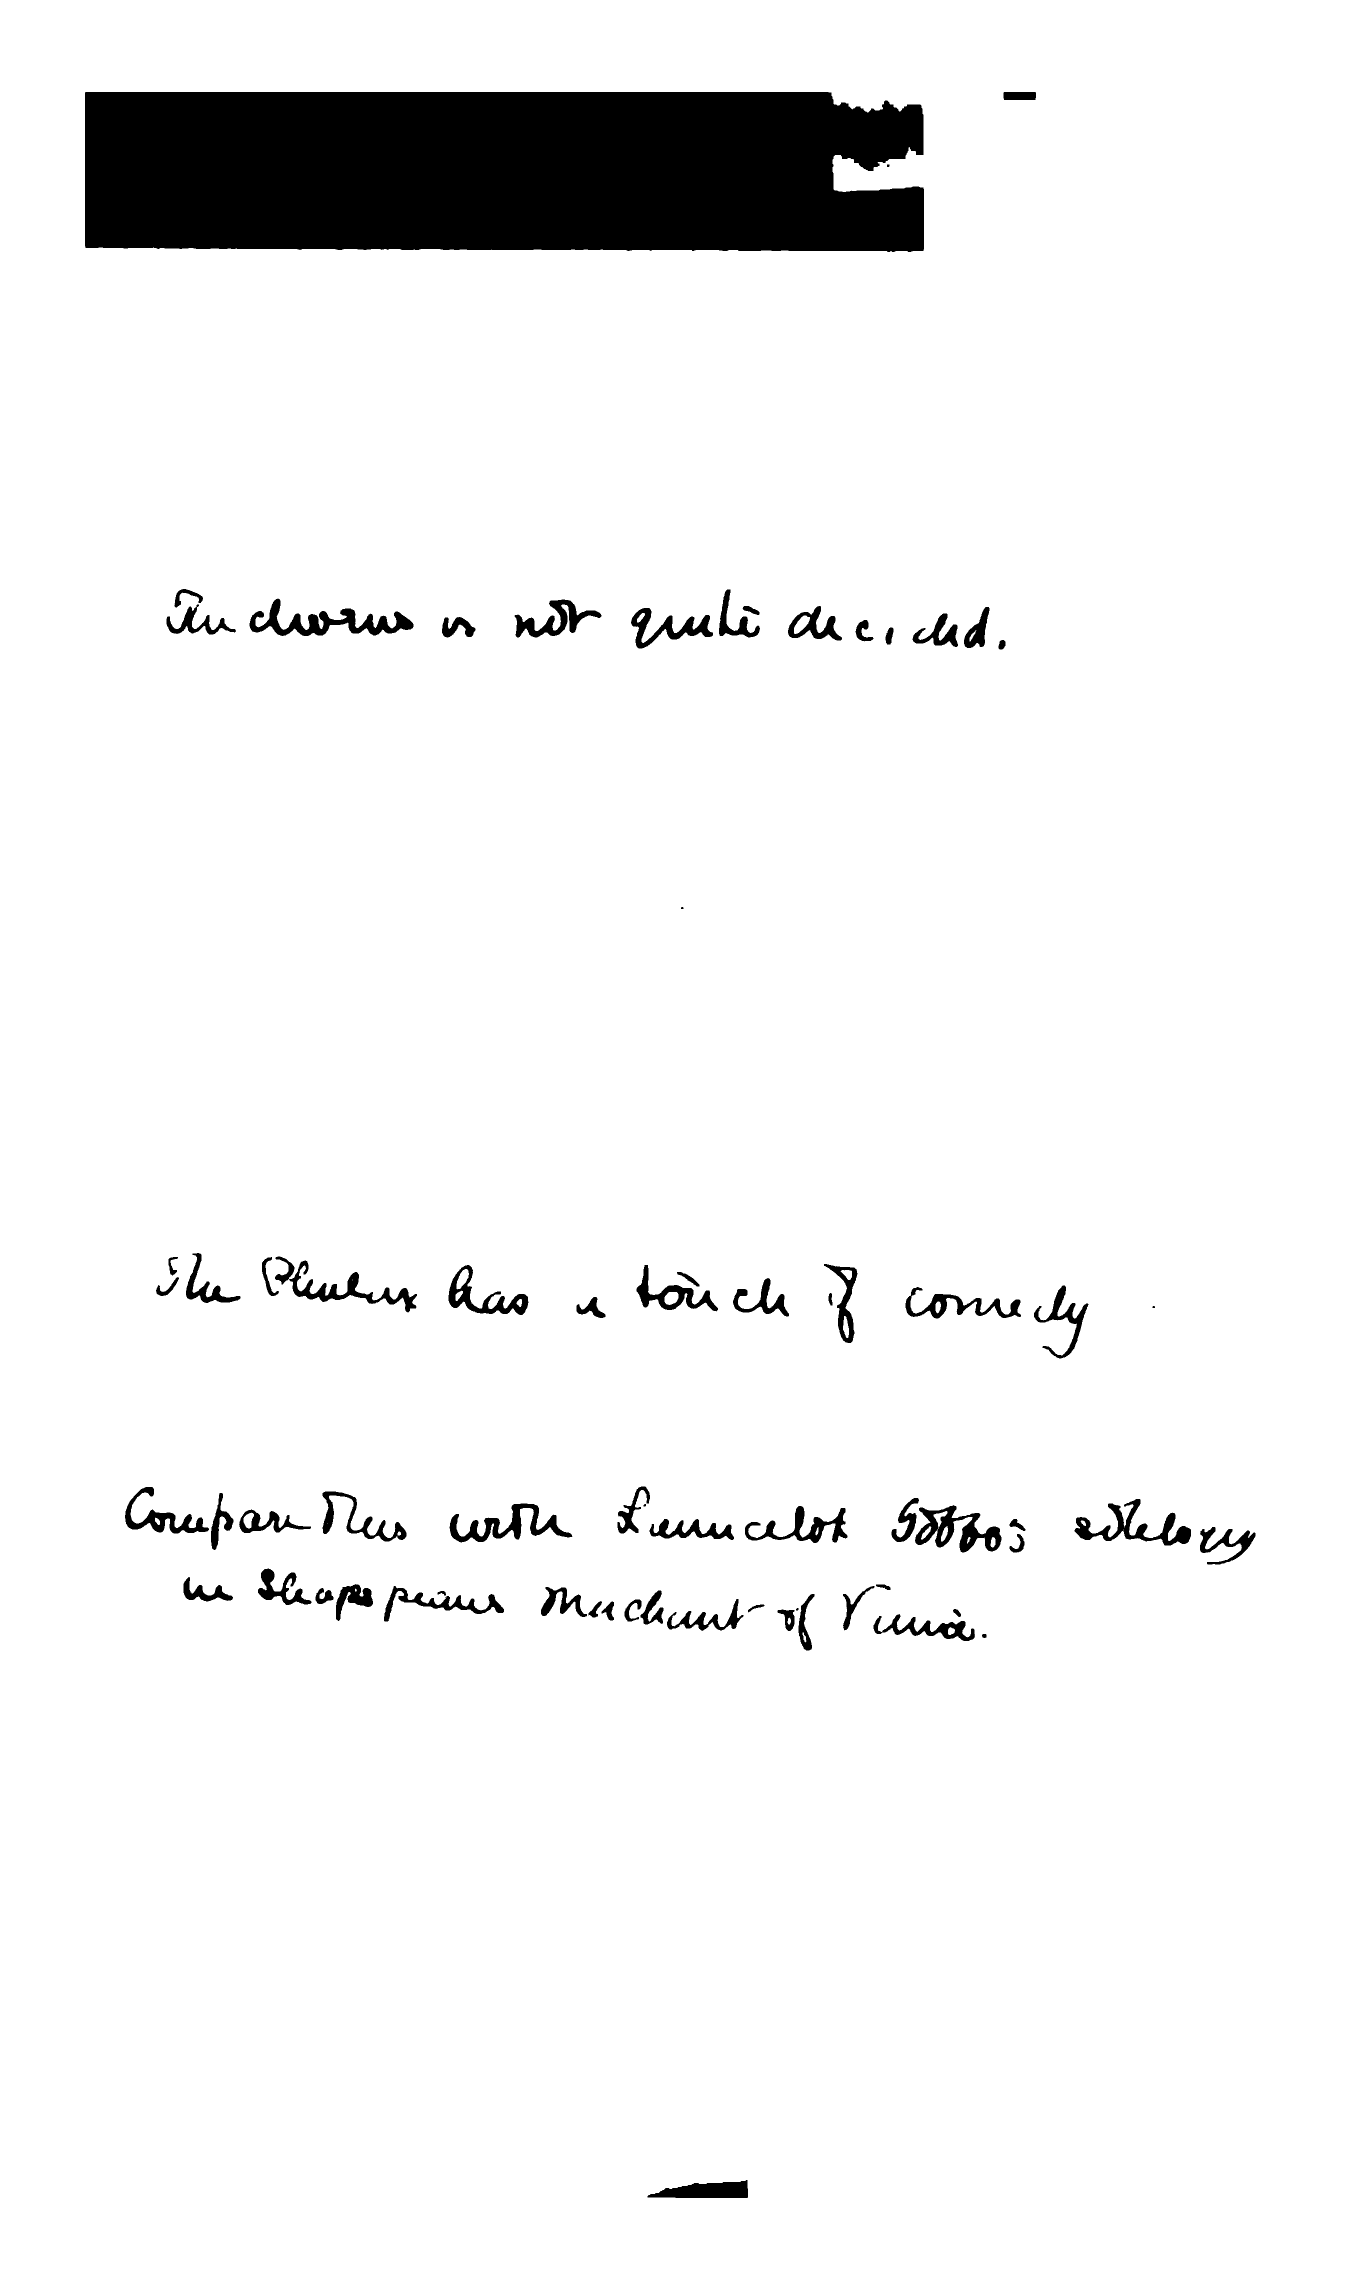 The chorus is not quite decided.
The Phulax has a touch of comedy
Compare this with Launcelot Gobbo's soliloquy
in Shakspeares Merchant of Venice.